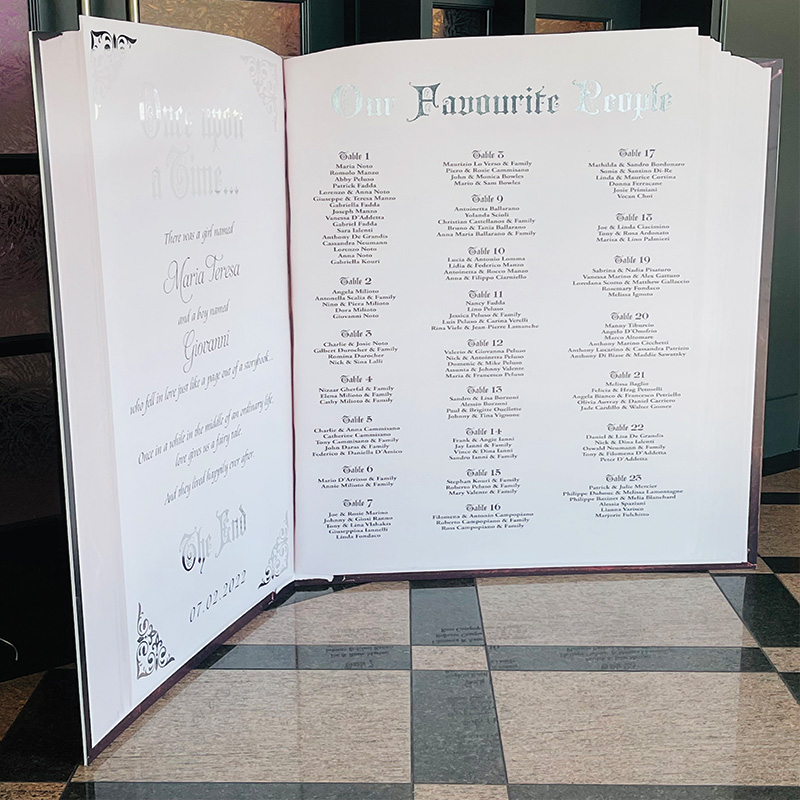 Once upon
a Time...
There was a girl named
Maria Teresa
and a boy named
Giovanni
who fell in love just like a page out of a storybook...
Once in a while in the middle of an ordinary life,
love gives us a fairy tale.
And they lived happily ever after
The End
07.02.2022
Our Favourite People
Table 1
Maria Noto
Romolo Manzo
Abby Peluso
Patrick Fadda
Lorenzo & Anna Noto
Giuseppe & Teresa Manzo
Gabriella Fadda
Joseph Manzo
Vanessa D'Addetta
Gabriel Fadda
Sara Ialenti
Anthony De Grandis
Cassandra Neumann
Lorenzo Noto
Anna Noto
Gabriella Kouri
Table 2
Angela Milioto
Antonella Scalia & Family
Nino & Piera Milioto
Dora Milioto
Giovanni Noto
Table 3
Charlie & Josie Noto
Gilbert Durocher & Family
Romina Durocher
Nick & Sina Lalli
Table 4
Nizaar Gherfal & Family
Elena Milioto & Family
Cathy Milioto & Family
Table 5
Charlie & Anna Cammisano
Catherine Cammisano
Tony Cammisano & Family
John Daras & Family
Federico & Daniella D'Amico
Table 6
Mario D'Arrisso & Family
Annie Milioto & Family
Table 7
Joe & Rosie Marino
Johnny & Giusi Ranno
Tony & Lina Vlahakis
Giuseppina Iannelli
Linda Fondaco
Table 8
Maurizio Lo Verso & Family
Piero & Rosie Cammisano
John & Monica Bowles
Mario & Sam Bowles
Table 9
Antoinetta Ballarano
Yolanda Scioli
Christian Castellanos & Family
Bruno & Tania Ballarano
Anna Maria Ballarano & Family
Table 10
Lucia & Antonio Lomma
Lidia & Federico Manzo
Antoinetta & Rocco Manzo
Anna & Filippo Ciarniello
Table 11
Nancy Fadda
Lino Peluso
Jessica Peluso & Family
Luis Peluso & Carina Verelli
Rina Viele & Jean-Pierre Lamanche
Table 12
Valerio & Giovanna Peluso
Nick & Antoinetta Peluso
Domenic & Mike Peluso
Assunta & Johnny Valente
Maria & Francesco Peluso
Table 13
Sandro & Lisa Borzoni
Alessio Borzoni
Paul & Brigitte Ouellette
Johnny & Tina Vignone
Table 14
Frank & Angie Ianni
Jay Ianni & Family
Vince & Dina Ianni
Sandro Ianni & Family
Table 15
Stephan Kouri & Family
Roberto Peluso & Family
Mary Valente & Family
Table 16
Filomena & Antonio Campopiano
Roberto Campopiano & Family
Rosa Campopiano & Family
Table 17
Mathilda & Sandro Bordonaro
Sonia & Santino Di-Re
Linda & Maurice Cortina
Donna Ferracane
Josie Primiani
Vecan Choi
Table 18
Joe & Linda Ciaccimino
Tony & Rosa Ardonato
Marisa & Lino Palmieri
Table 19
Sabrina & Nadia Pisaturo
Vanessa Marino & Alex Gattuso
Loredana Scotto & Matthew Gallaccio
Rosemary Fondaco
Melissa Ignona
Table 20
Manny Tiburcio
Angelo D'Onofrio
Marco Altomare
Anthony Marino Cecchetti
Anthony Lucarino & Cassandra Patrizio
Anthony Di Biase & Maddie Sawatzky
Table 21
Melissa Baglio
Felicia & Hrag Petnoelli
Angela Bianco & Francesco Petriello
Olivia Auvray & Daniel Carriero
Jade Cardillo & Walter Gomez
Table 22
Daniel & Lisa De Grandis
Nick & Dina Ialenti
Oswald Neumann & Family
Tony & Filomena D'Addetta
Peter D'Addetta
Table 23
Patrick & Julie Mercier
Philippe Dubouc & Melissa Lamontagne
Philippe Batizes & Melia Blanchard
Alessia Spaziani
Lianna Varisco
Marjorie Fulchiero